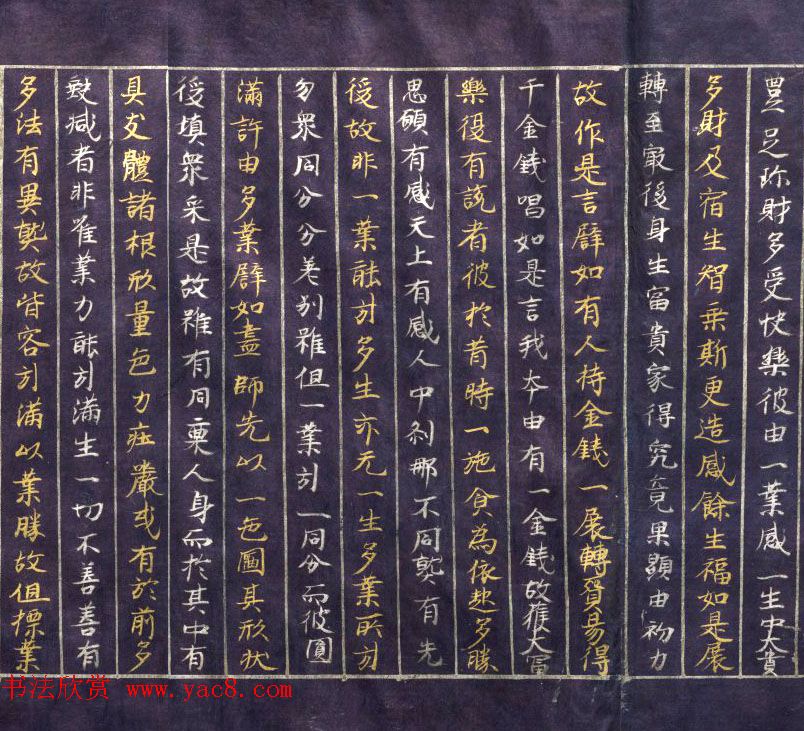 豐足珎財多受快樂彼由一業感一生中大貴
多財及宿生智乗斯更造感餘生福如是展
轉至寂後身生富貴家得究竟果顯由初力
故作是言辟如有人持金錢一展轉貿易得
千金錢唱如是言我本由有一金錢故獲大富
樂復有說者彼於昔時一施食為依起多勝
思願有感天上有感人中刹那不同熟有先
後故非一業能引多生亦无一生多業所引
勿衆同分分差别雖但一業引一同分而彼圓
滿許由多業辟如畫師先以一色圖其形狀
後填衆采是故雖有同稟人身而於其中有
具支體諸根形量色力莊嚴或有於前多
缺減者非唯業力能引滿生一切不善善有
多法有異熟故皆容引滿以業勝故但標業
书法欣赏 www.yac8.com